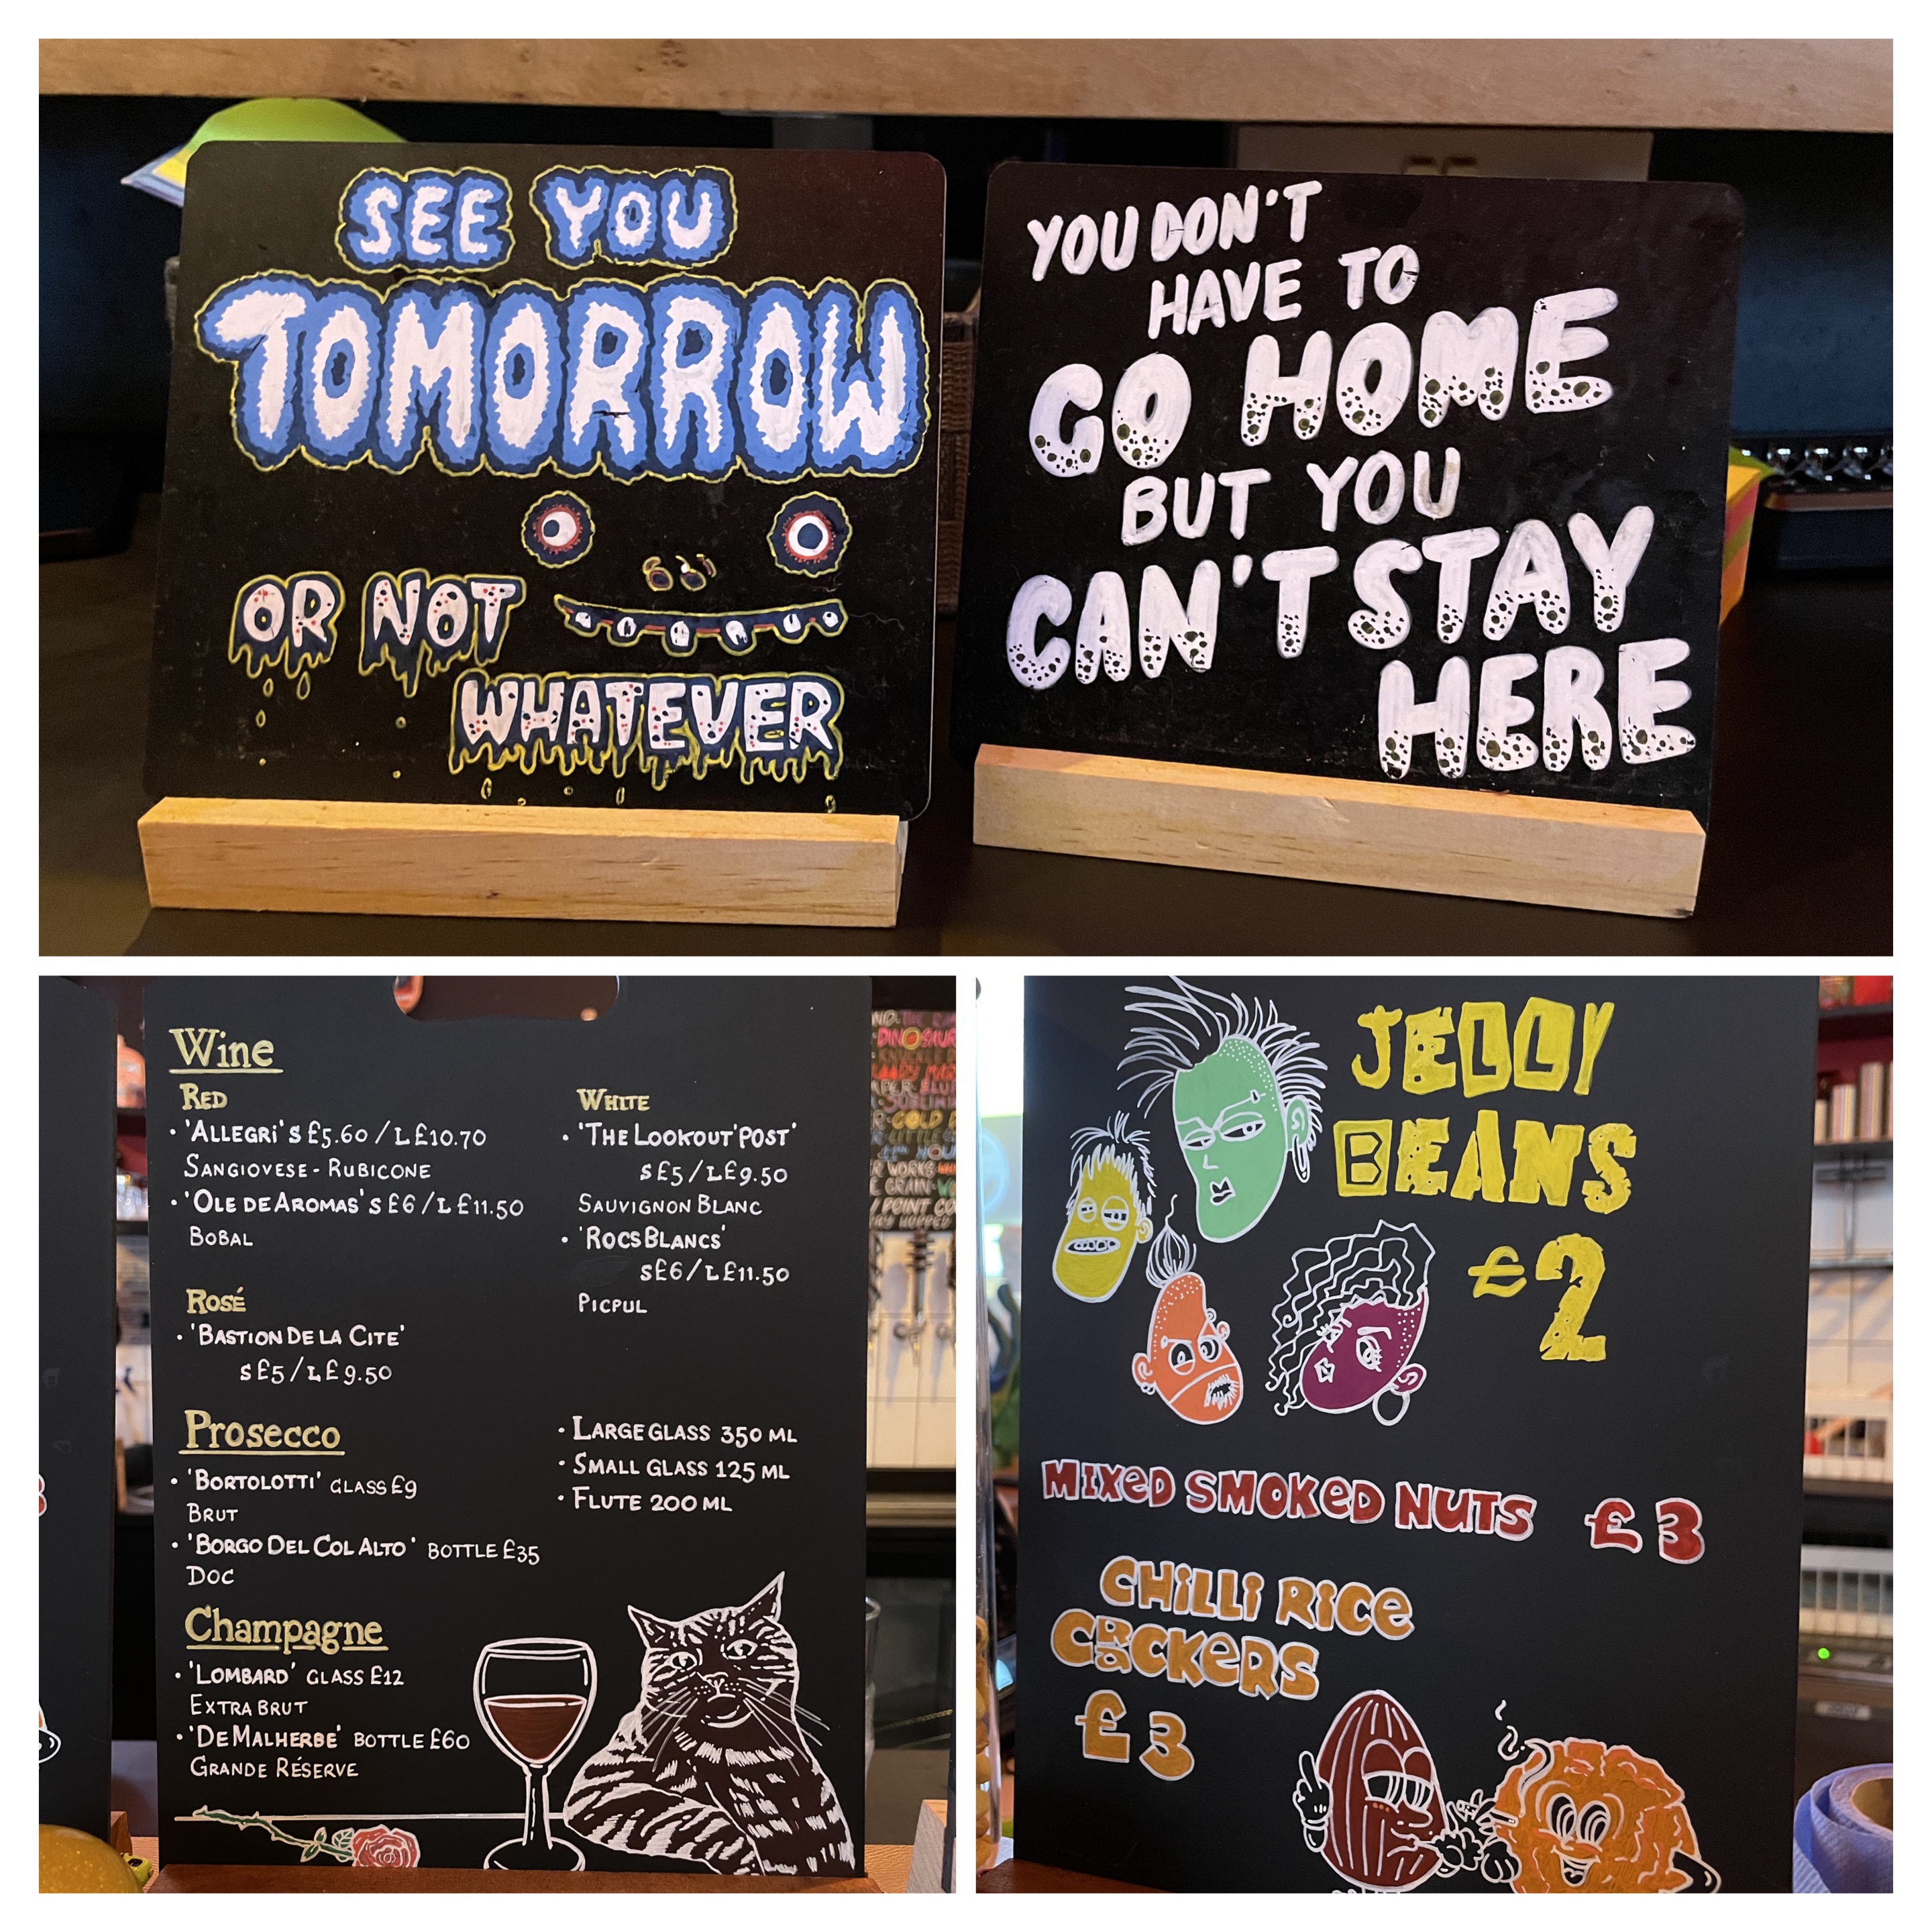 SEE YOU
TOMORROW
OR NOT
WHATEVER
YOU DON'T
HAVE TO
GO HOME
BUT YOU
CAN'T STAY
HERE
Wine
RED
• 'ALLEGRI' S £5.60 / L £10.70
SANGIOVESE - RUBICONE
• 'OLE DE AROMAS' S £6 / L £11.50
BOBAL
ROSÉ
• 'BASTION DE LA CITE'
S £5 / L £9.50
WHITE
• 'THE LOOKOUT' POST'
S £5 / L £9.50
SAUVIGNON BLANC
• 'ROCS BLANCS'
S £6 / L £11.50
PICPUL
Prosecco
• 'BORTOLOTTI' GLASS £9
BRUT
• 'BORGO DEL COL ALTO' BOTTLE £35
DOC
• LARGE GLASS 350 ML
• SMALL GLASS 125 ML
• FLUTE 200 ML
Champagne
• 'LOMBARD' GLASS £12
EXTRA BRUT
• 'DE MALHERBE' BOTTLE £60
GRANDE RÉSERVE
JELLY
BEANS
£2
MIXED SMOKED NUTS £3
CHILLI RICE
CRACKERS
£3